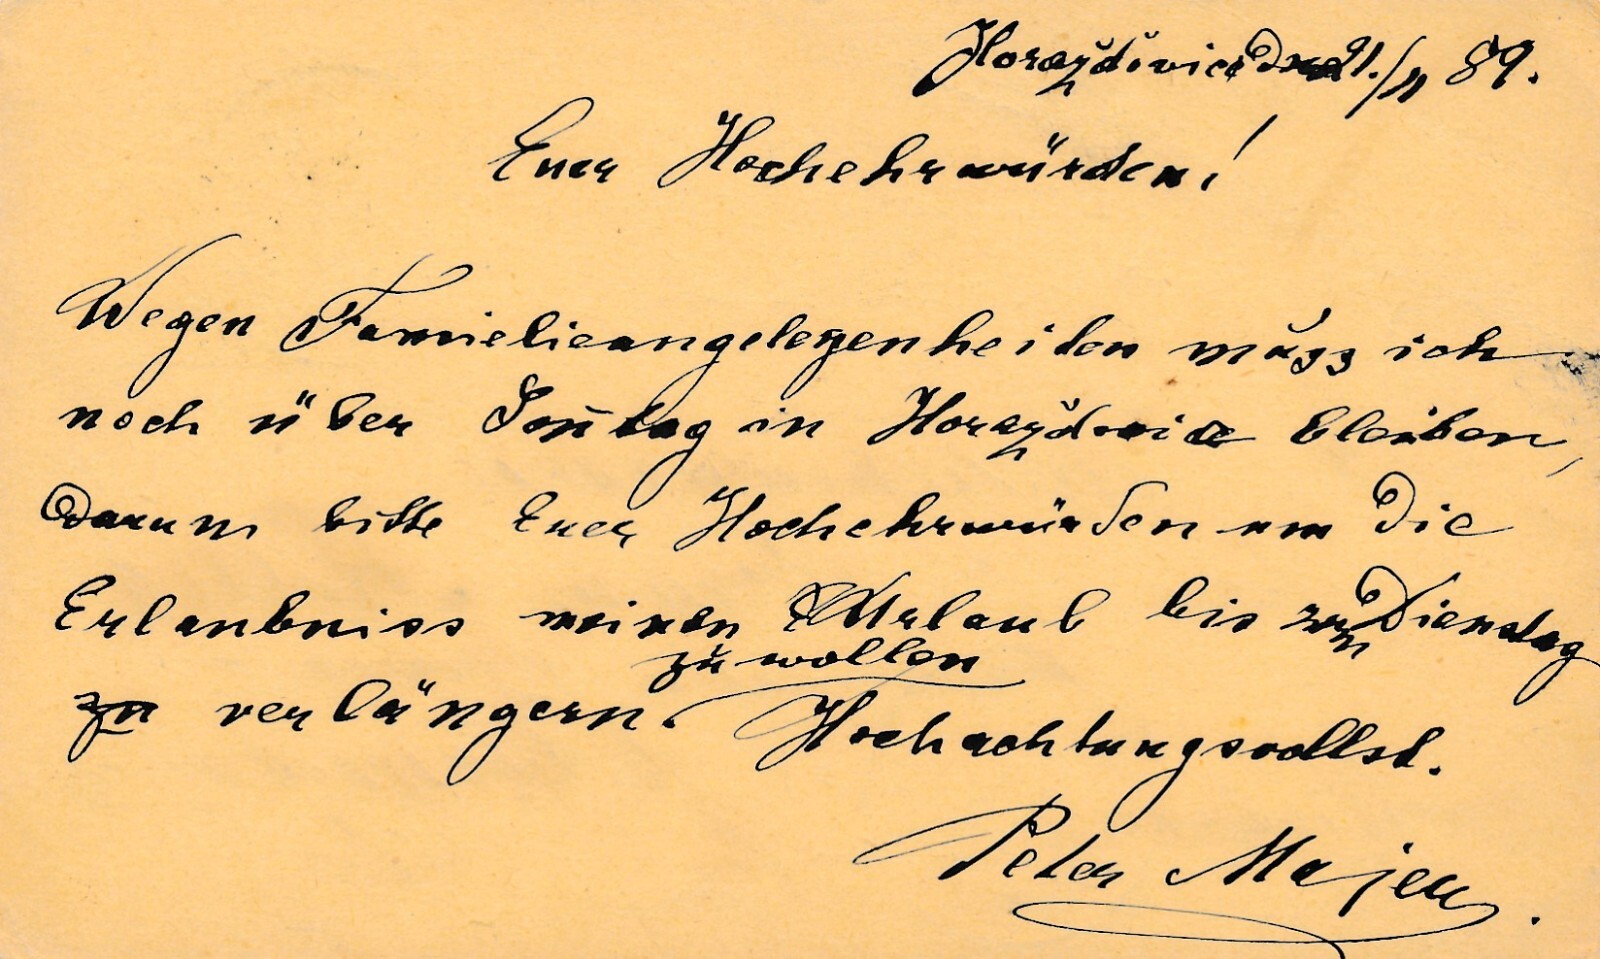 Horažďovice Dne 21./11 89.
Euer Hochehrwürden!
Wegen Familieangelegenheiden muss ich
noch über Sontag in Horaždovic bleiben,
Darum bitte Euer Hochehrwürden um Die
Erlaubniss meinen Urlaub bis zum Dienstag
zu wollen
zu verlängern. Hochachtungsvollst.
Peter Majer.